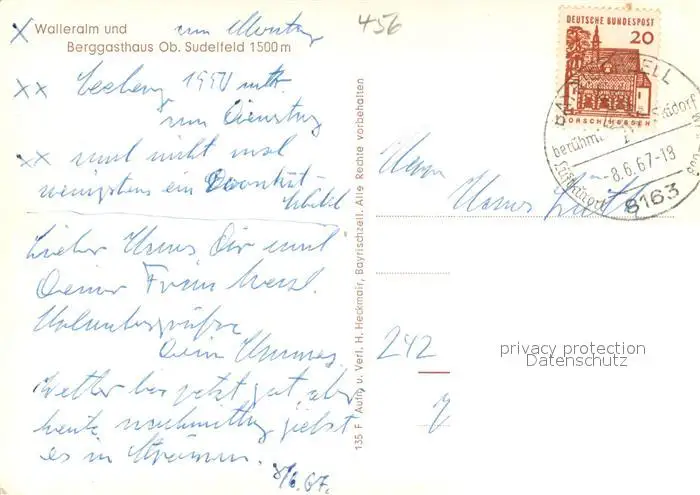 Walleralm und
Berggasthaus Ob. Sudelfeld 1500 m
x zum Montag
xx
zum Dienstag
xx und nicht mal
wenigstens ein
Lieber Hannes, Dir und
Deiner Frau herzl.
Urlaubsgrüße
Dein Hannes
Wetter bis jetzt gut, aber
heute nachmittag gießt
es in Strömen.
8/6.67.
135 F Aufn. u. Verl. H. Heckmair, Bayrischzell. Alle Rechte vorbehalten
456
DEUTSCHE BUNDESPOST
20
LORSCH/HESSEN
8.6.67-18
8163
Herrn
Hannes
242
privacy protection
Datenschutz